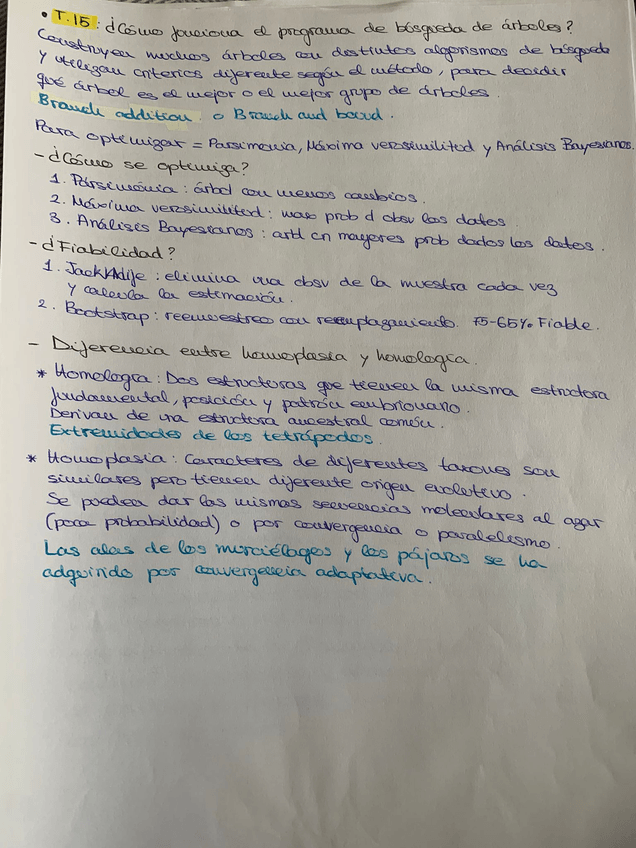 • T.15: ¿Cómo funciona el programa de búsqueda de árboles?
Construyen muchos árboles con distintos algorismos de búsqueda
y utilizan criterios diferente según el método, para decidir
qué árbol es el mejor o el mejor grupo de árboles.
Branch addition o Branch and bound.
Para optimizar = Parsimonia, Máxima verosimilitud y Análisis Bayesianos.
- ¿Cómo se optimiza?
1. Parsimonia: árbol con menos cambios.
2. Máxima verosimilitud: max prob d obsv los datos.
3. Análisis Bayesianos: cn mayores prob dados los datos.
- ¿Fiabilidad?
1. Jacknife: elimina una obsv de la muestra cada vez
y calcula la estimación.
2. Bootstrap: reemuestreo con reemplazamiento. 75-65% Fiable.
- Diferencia entre homoplasia y homología.
* Homología: Dos estructuras que tienen la misma estructora
fundamental, posición y patrón embrionario.
Derivan de una estructura ancestral común.
Extremidades de los tetrápodos.
* Homoplasia: Caracteres de diferentes taxones son
similares pero tienen diferente origen evolutivo.
Se pueden dar las mismas secuencias moleculares al azar
(poca probabilidad) o por convergencia o paralelismo.
Las alas de los murciélagos y los pájaros se ha
adquirido por convergencia adaptativa.